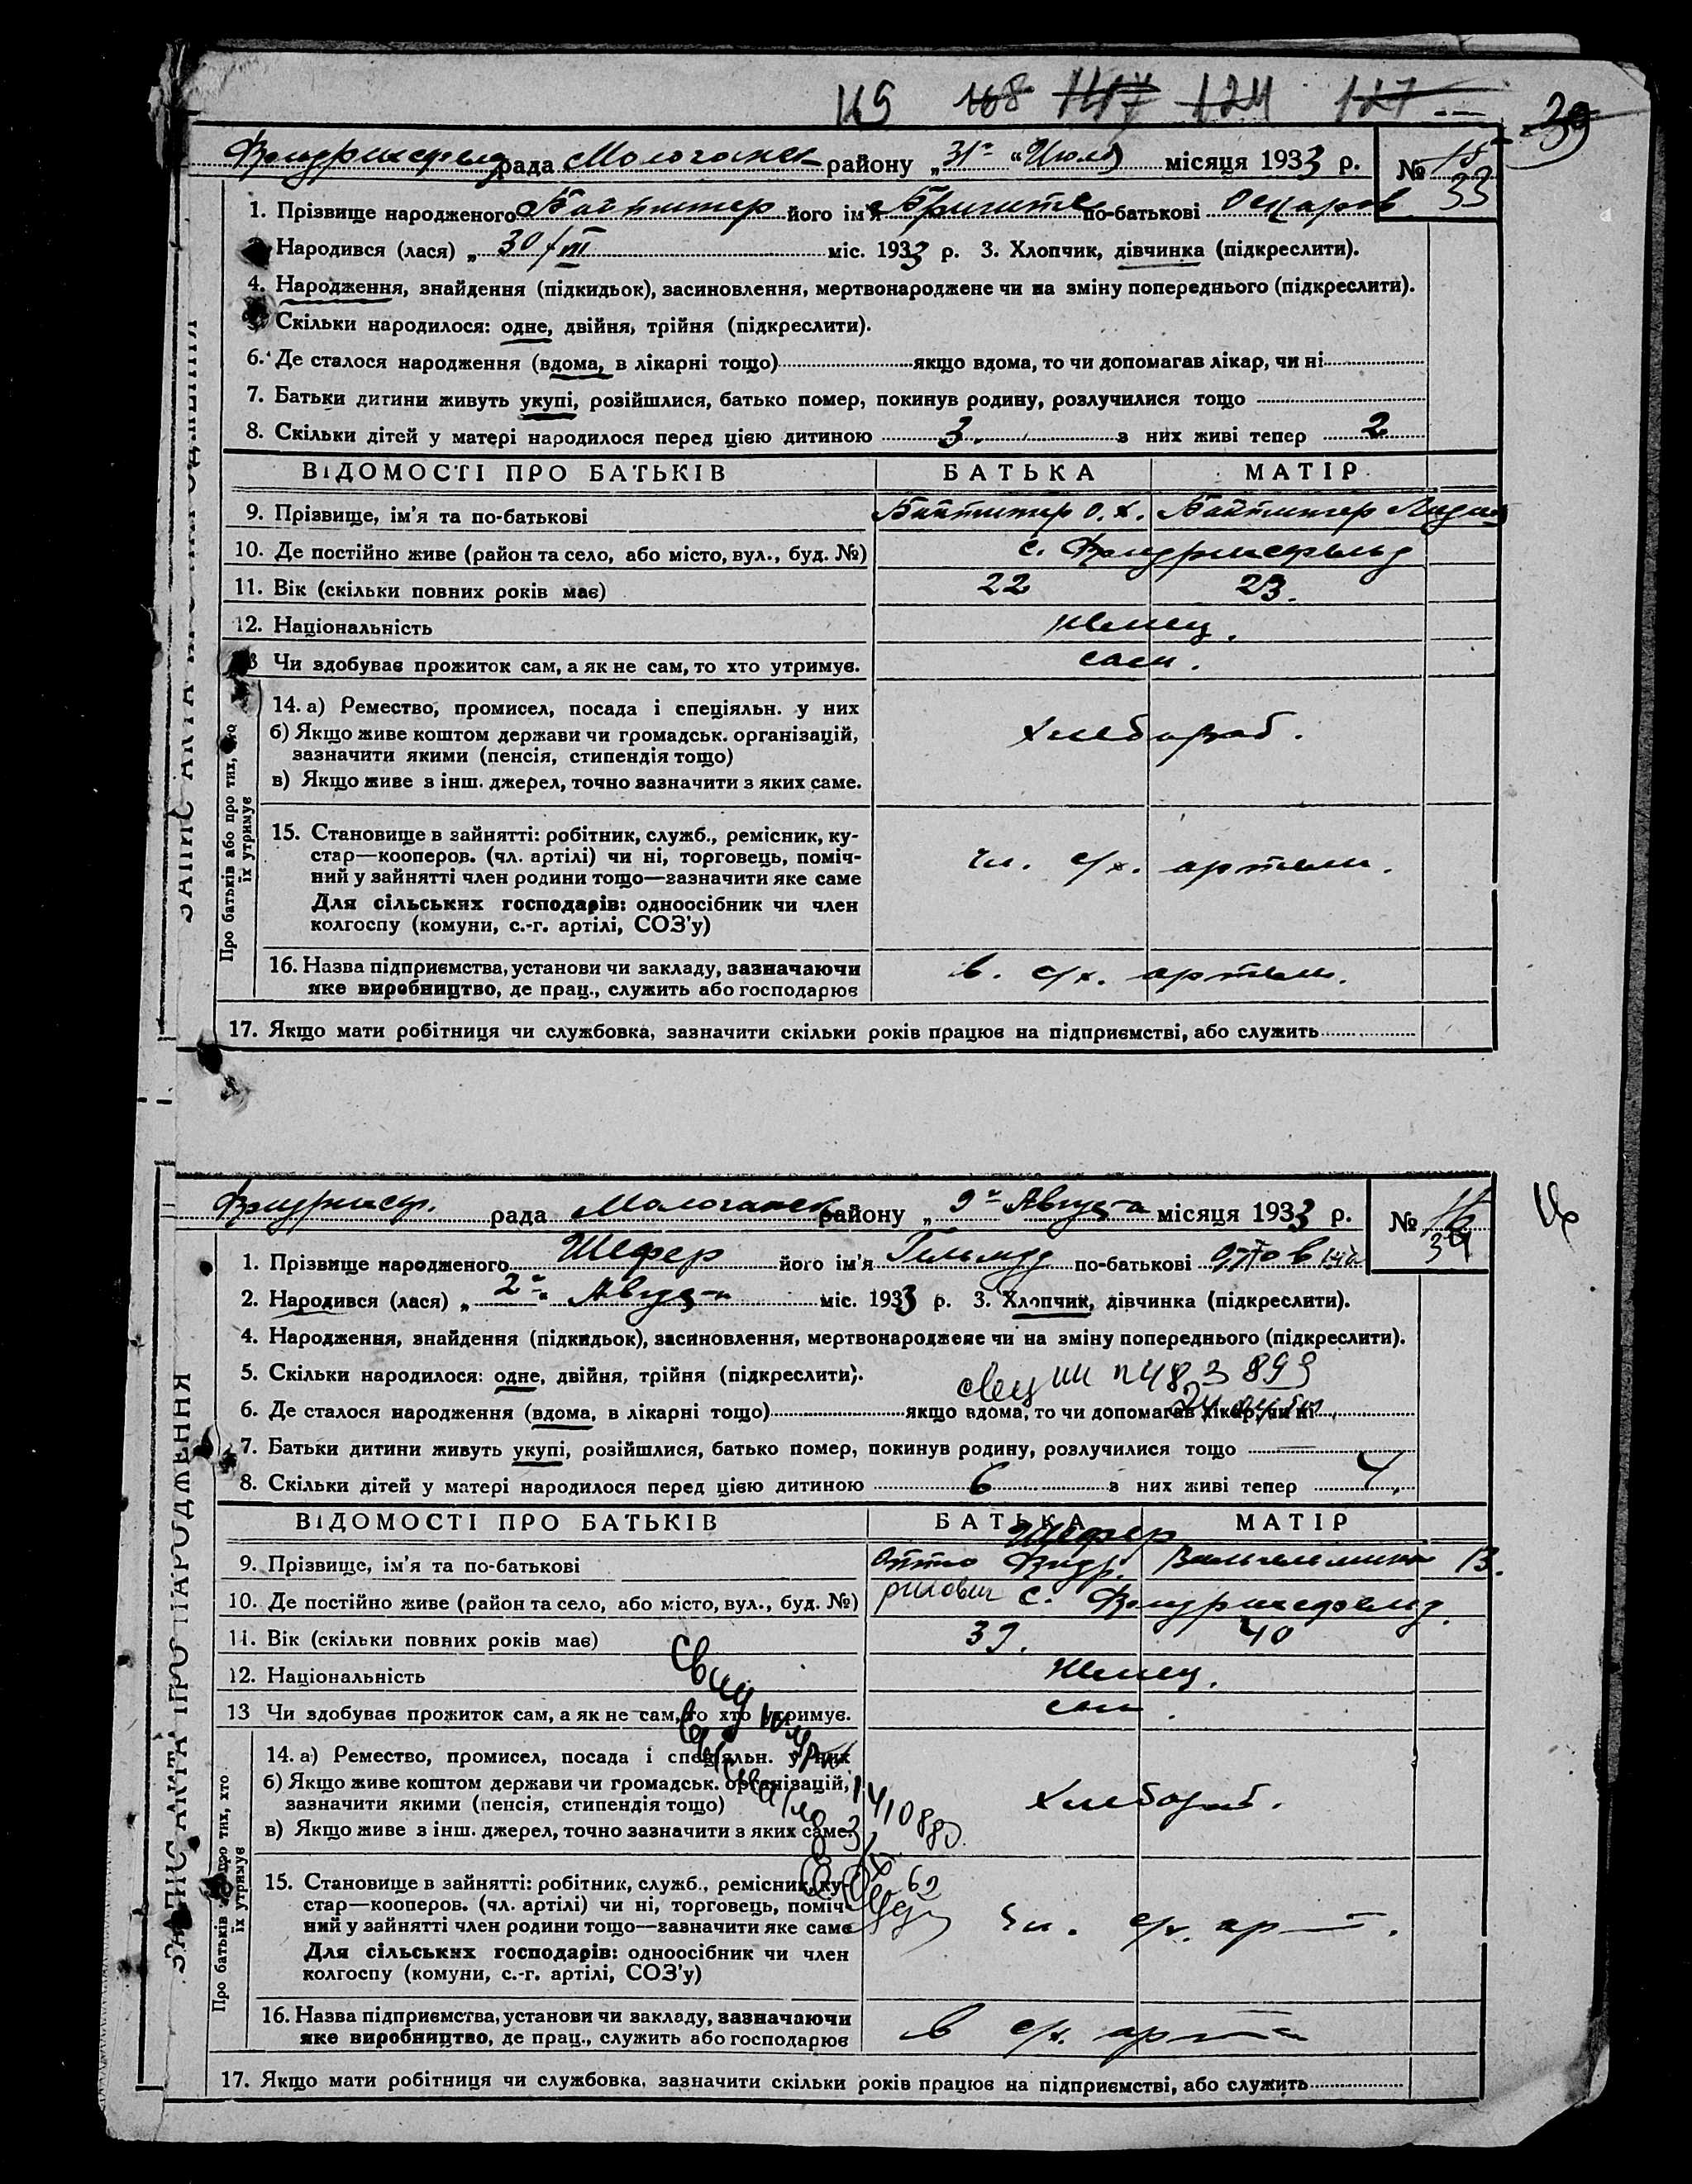 119 168 147 124 127 39
Фридрихсфельд рада Молочанск району „31го“ Июля місяця 1933 р. № 15
33
1. Прізвище народженого Байтингер його ім'я Бригите по-батькові Оскаров
2. Народився (лася) „ 30/III міс. 1933 р. 3. Хлопчик, дівчинка (підкреслити).
4. Народження, знайдення (підкидьок), засиновлення, мертвонароджене чи на зміну попереднього (підкреслити).
5. Скільки народилося: одне, двійня, трійня (підкреслити).
6. Де сталося народження (вдома, в лікарні тощо) якщо вдома, то чи допомагав лікар, чи ні
7. Батьки дитини живуть укупі, розійшлися, батько помер, покинув родину, розлучилися тощо
8. Скільки дітей у матері народилося перед цією дитиною 3. з них живі тепер 2
ВІДОМОСТІ ПРО БАТЬКІВ БАТЬКА МАТІР
9. Прізвище, ім'я та по-батькові Байтингер О. Х. Байтингер Лидия
10. Де постійно живе (район та село, або місто, вул., буд. №) с. Фридрихсфельд
11. Вік (скільки повних років має) 22 23.
12. Національність немец.
13 Чи здобуває прожиток сам, а як не сам, то хто утримує. сам.
14. а) Ремество, промисел, посада і спеціяльн. у них
б) Якщо живе коштом держави чи громадськ. організацій,
зазначити якими (пенсія, стипендія тощо) хлебороб.
в) Якщо живе з інш. джерел, точно зазначити з яких саме.
15. Становище в зайнятті: робітник, служб., ремісник, ку-
стар—кооперов. (чл. артілі) чи ні, торговець, поміч-
ний у зайнятті член родини тощо—зазначити яке саме чл. с/х. артели.
Для сільських господарів: одноосібник чи член
колгоспу (комуни, с.-г. артілі, СОЗ'у)
16. Назва підприємства, установи чи закладу, зазначаючи в. с/х. артели.
яке виробництво, де прац., служить або господарює
17. Якщо мати робітниця чи службовка, зазначити скільки років працює на підприємстві, або служить
Про батьків або про тих, хто
їх утримує
Фридрихсф. рада Молочанск району „ 9го Августа місяця 1933 р. № 16
34
1. Прізвище народженого Шефер його ім'я Гельмут по-батькові Оттович
2. Народився (лася) „ 2го Августа міс. 1933 р. 3. Хлопчик, дівчинка (підкреслити).
4. Народження, знайдення (підкидьок), засиновлення, мертвонароджене чи на зміну попереднього (підкреслити).
5. Скільки народилося: одне, двійня, трійня (підкреслити).
6. Де сталося народження (вдома, в лікарні тощо) якщо вдома, то чи допомагав лікар, чи ні
7. Батьки дитини живуть укупі, розійшлися, батько помер, покинув родину, розлучилися тощо
8. Скільки дітей у матері народилося перед цією дитиною 6 з них живі тепер 4
ВІДОМОСТІ ПРО БАТЬКІВ БАТЬКА МАТІР
Шефер
9. Прізвище, ім'я та по-батькові Отто Фрид. Вильгельмина В.
рихович
10. Де постійно живе (район та село, або місто, вул., буд. №) с. Фридрихсфельд.
11. Вік (скільки повних років має) 39. 40
12. Національність немец.
13 Чи здобуває прожиток сам, а як не сам, то хто утримує. сам.
14. а) Ремество, промисел, посада і спеціяльн. у них
б) Якщо живе коштом держави чи громадськ. організацій,
зазначити якими (пенсія, стипендія тощо) хлебороб.
в) Якщо живе з інш. джерел, точно зазначити з яких саме.
15. Становище в зайнятті: робітник, служб., ремісник, ку-
стар—кооперов. (чл. артілі) чи ні, торговець, поміч-
ний у зайнятті член родини тощо—зазначити яке саме чл. с/х. арт.
Для сільських господарів: одноосібник чи член
колгоспу (комуни, с.-г. артілі, СОЗ'у)
16. Назва підприємства, установи чи закладу, зазначаючи в с/х. арт
яке виробництво, де прац., служить або господарює
17. Якщо мати робітниця чи службовка, зазначити скільки років працює на підприємстві, або служить
ЗАПИС АКТА ПРО НАРОДЖЕННЯ
їх утримує